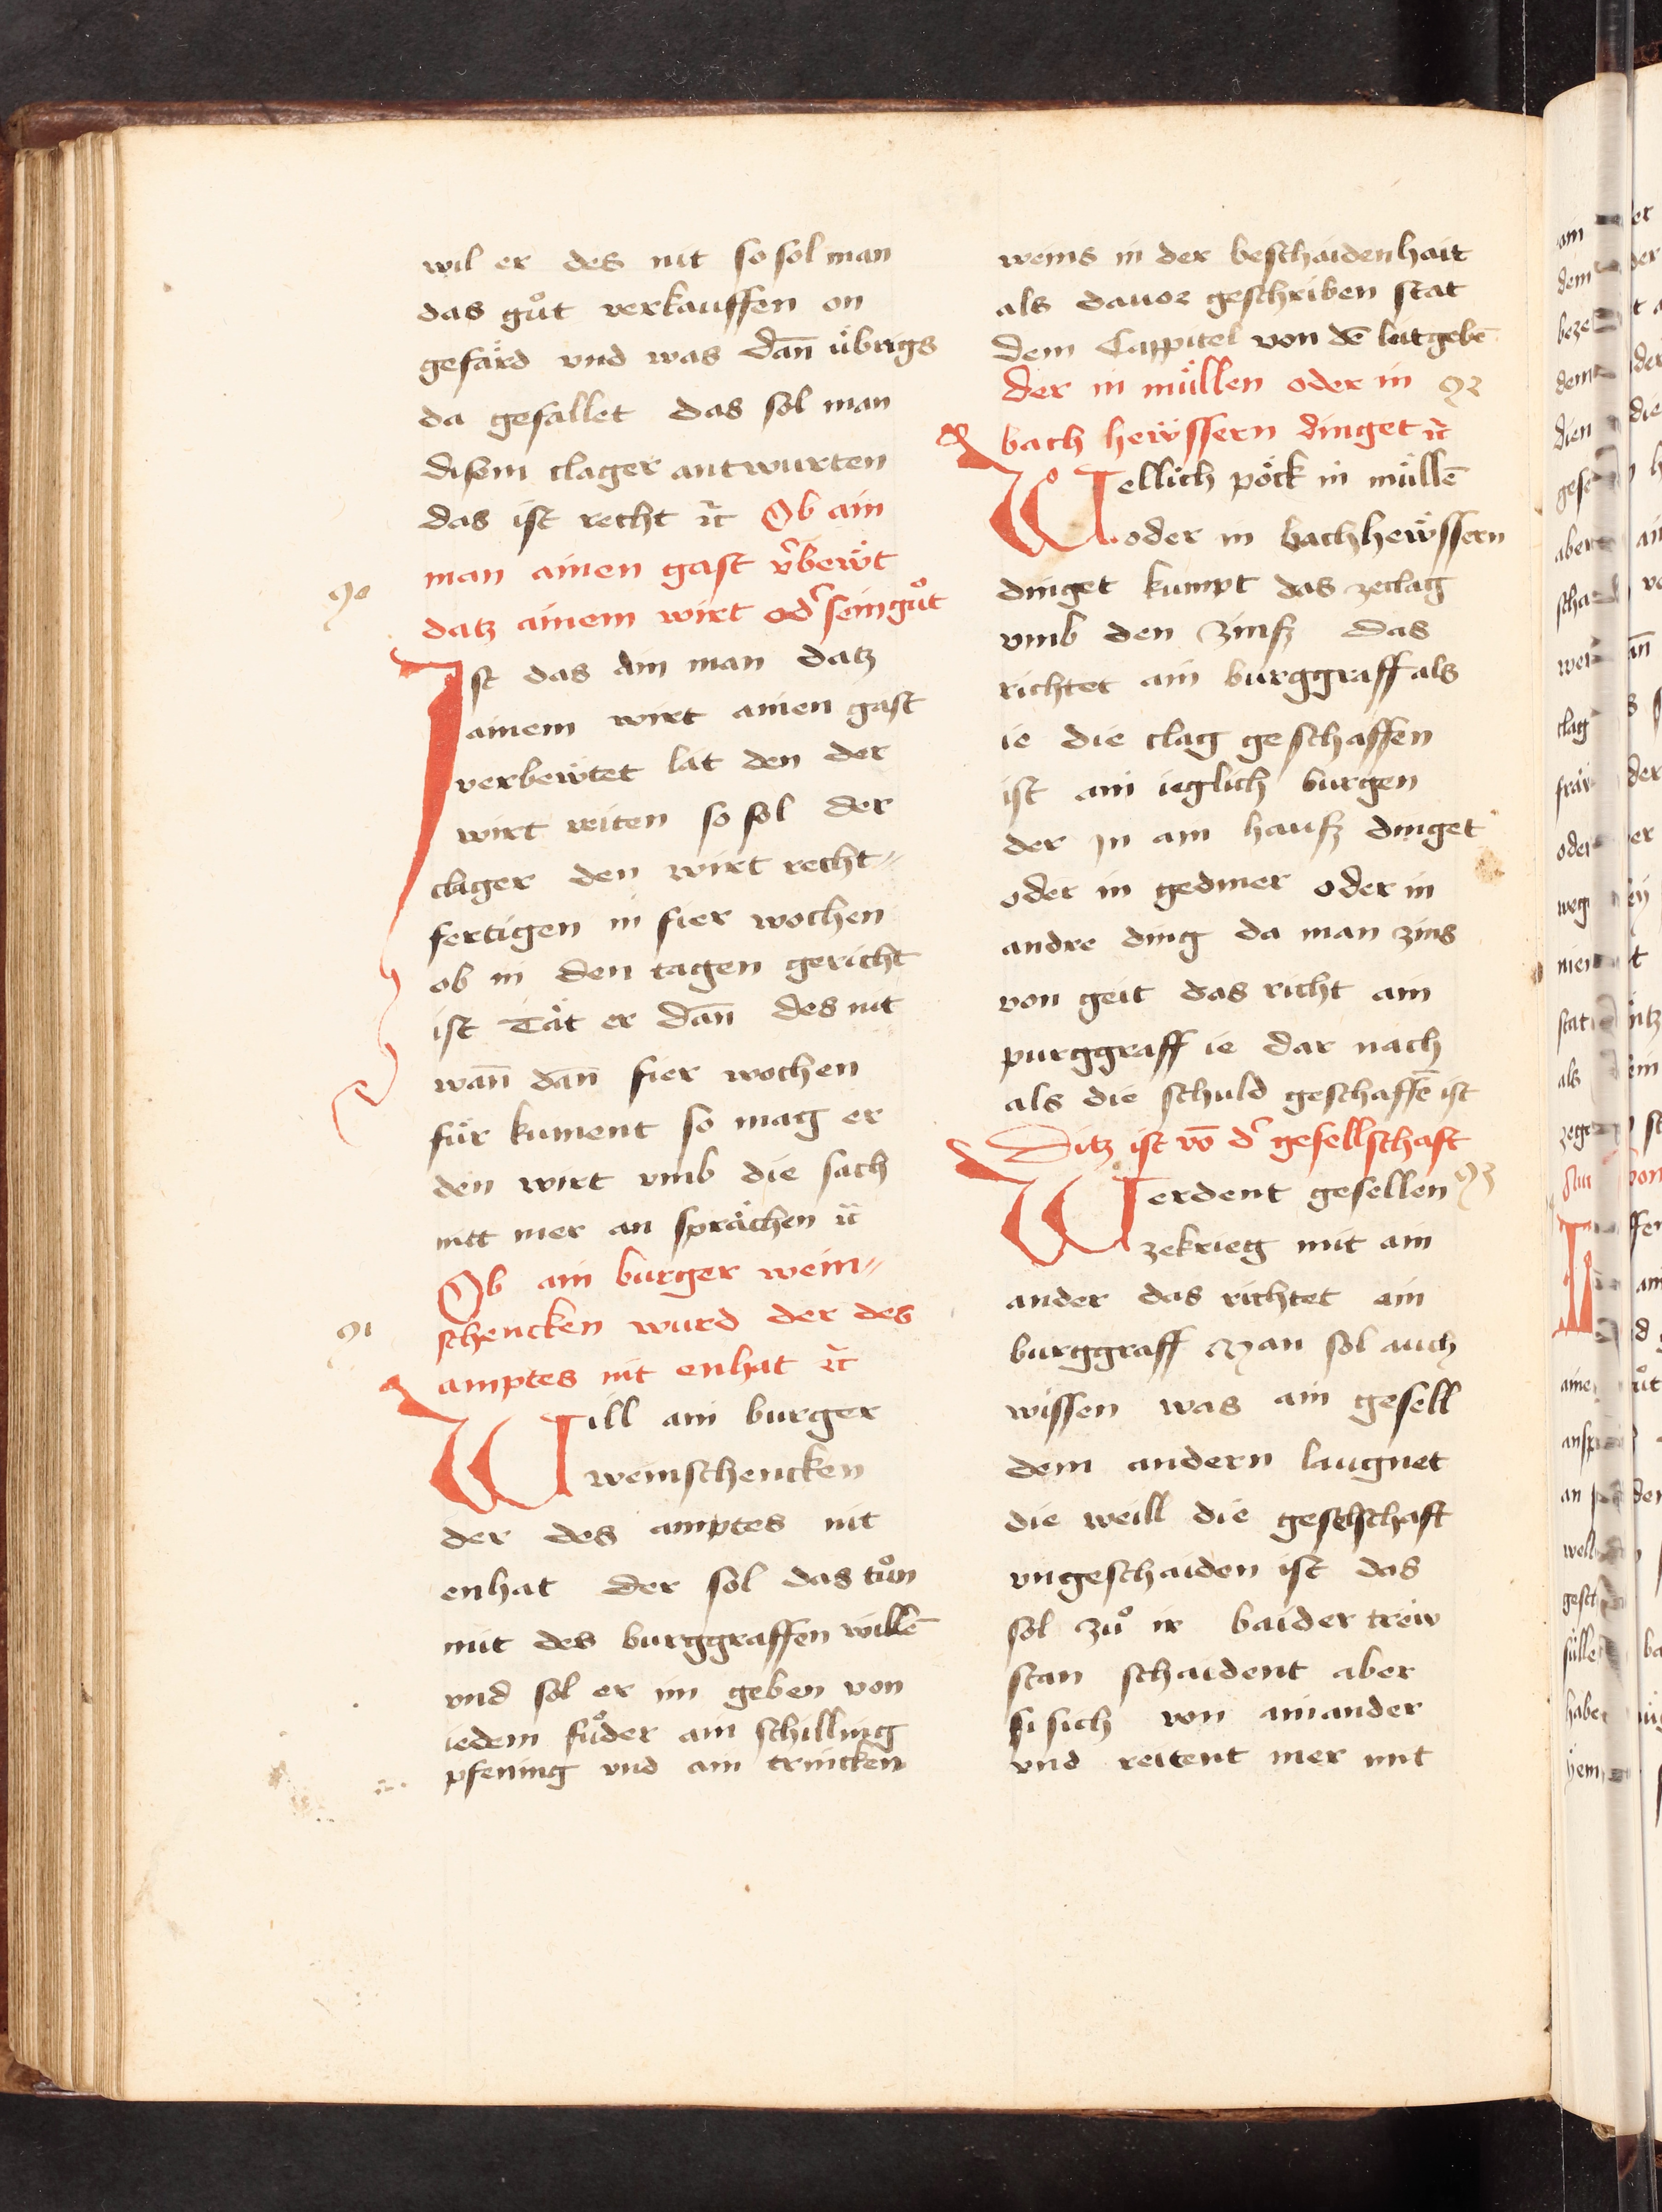 wil er des nit so sol man
das gůt verkauffen on
gefärd vnd was dan̄ übrigs
da gefallet das sol man
disem clager antwurten
das ist recht ꝛc̄ Ob ain
man ainen gast v̾bewt
90
datz ainem wirt od̾ sein gůt
Ist das ain man datz
ainem wirt ainen gast
verbewtet lät den der
wirt reiten so sol der
clager den wirt recht=
fertigen in fier wochen
ob in den tagen gericht
ist Tät er dan̄ des nit
wan̄ dan̄ fier wochen
für kument so mag er
den wirt vmb die sach
nitt mer an sprächen ꝛc̄
Ob ain burger wein=
91
schencken wurd der des
amptes nit enhat ꝛc̄
Will ain burger
weinschencken
der des amptes nit
enhat der sol das tůn
mit des burggraffen willē
vnd sol er im geben von
iedem fůder ain schilling
pfening vnd ain trincken
weins in der beschaidenhait
als dauor geschriben stat
dem Cappitel von dē leitgebē
der in müllen oder in 92
bach hewssern dinget ꝛc̄
Wellich pöck in müllē
oder in bachhewssern
dinget kumpt das zeclag
vmb den zinsz das
richtet ain burggraff als
ie die clag geschaffen
ist ain ieglich burgen
der in ain hausz dinget
oder in gedmer oder in
andre ding da man zins
von geit das richt ain
purggraff ie dar nach
als die schuld geschaffē ist
Ditz ist vō d̾ gesellschaft
Werdent gesellen 93
zekrieg mit ain
ander das richtet ain
burggraff Man sol auch
wissen was ain gesell
dem andern laugnet
die weill die geselschaft
vngeschaiden ist das
sol zů ir baider trew
stan schaident aber
si sich von ainander
vnd reitent mer mit